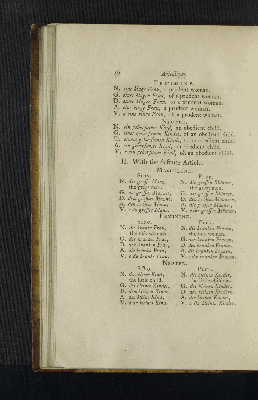 Adjectives.
FEMININE.
N. eine kluge Frau, a prudent woman.
G. einer klugen Frau, of a prudent woman.
D. einer klugen Frau, to a prudent woman.
A. eine kluge Frau, a prudent woman.
V. o eine kluge Frau, oh a prudent woman.
NEUTER.
N. ein gehorsames Kind, an obedient child.
G. eines gehorsamen Kindes, of an obedient child.
D. einem gehorsamen Kinde, to an obedient child.
A. ein gehorsames Kind, an obedient child.
V. o ein gehorsames Kind, oh an obedient child.
II. With the definite Article.
MASCULINE.
SING. PLUR.
N. der große Mann, N. die großen Männer,
the great man. the great men.
G. des großen Mannes, G. der großen Männer,
D. dem großen Manne, D. den großen Männern,
A. den großen Mann, A. die großen Männer,
V. o der große Mann. V. o die großen Männer.
FEMININE.
SING. PLUR.
N. die kranke Frau, N. die kranken Frauen,
the sick woman. the sick women.
G. der kranken Frau, G. der kranken Frauen,
D. der kranken Frau, D. den kranken Frauen,
A. die kranke Frau, A. die kranken Frauen,
V. o die kranke Frau. V. o die kranken Frauen.
NEUTER.
SING. PLUR.
N. das kleine Kind, N. die kleinen Kinder,
the little child. the little children.
G. des kleinen Kindes, G. der kleinen Kinder,
D. dem kleinen Kinde, D. den kleinen Kindern,
A. das kleine Kind, A. die kleinen Kinder,
V. o das kleine Kind. V. o die kleinen Kinder.